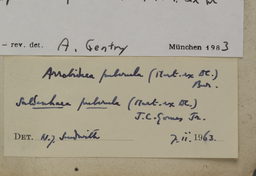 – rev. det. A. Gentry München 1983
Arrabidaea puberula (Mart. ex DC.)
Bur.
Saldanhaea puberula (Mart. ex DC.)
J.C. Gomes Jr.
DET. N.Y. Sandwith 7.ii.1963.